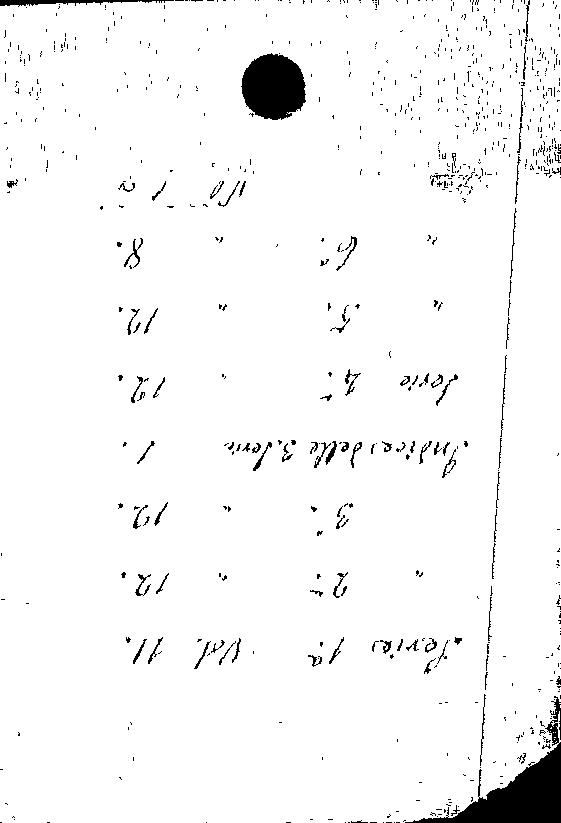 Series 1ª Vol. 11.
" 2ª " 12.
3ª " 12.
Indices delle 3. Serie 1.
Serie 4ª " 12.
" 5. " 12.
" 6ª " 8.